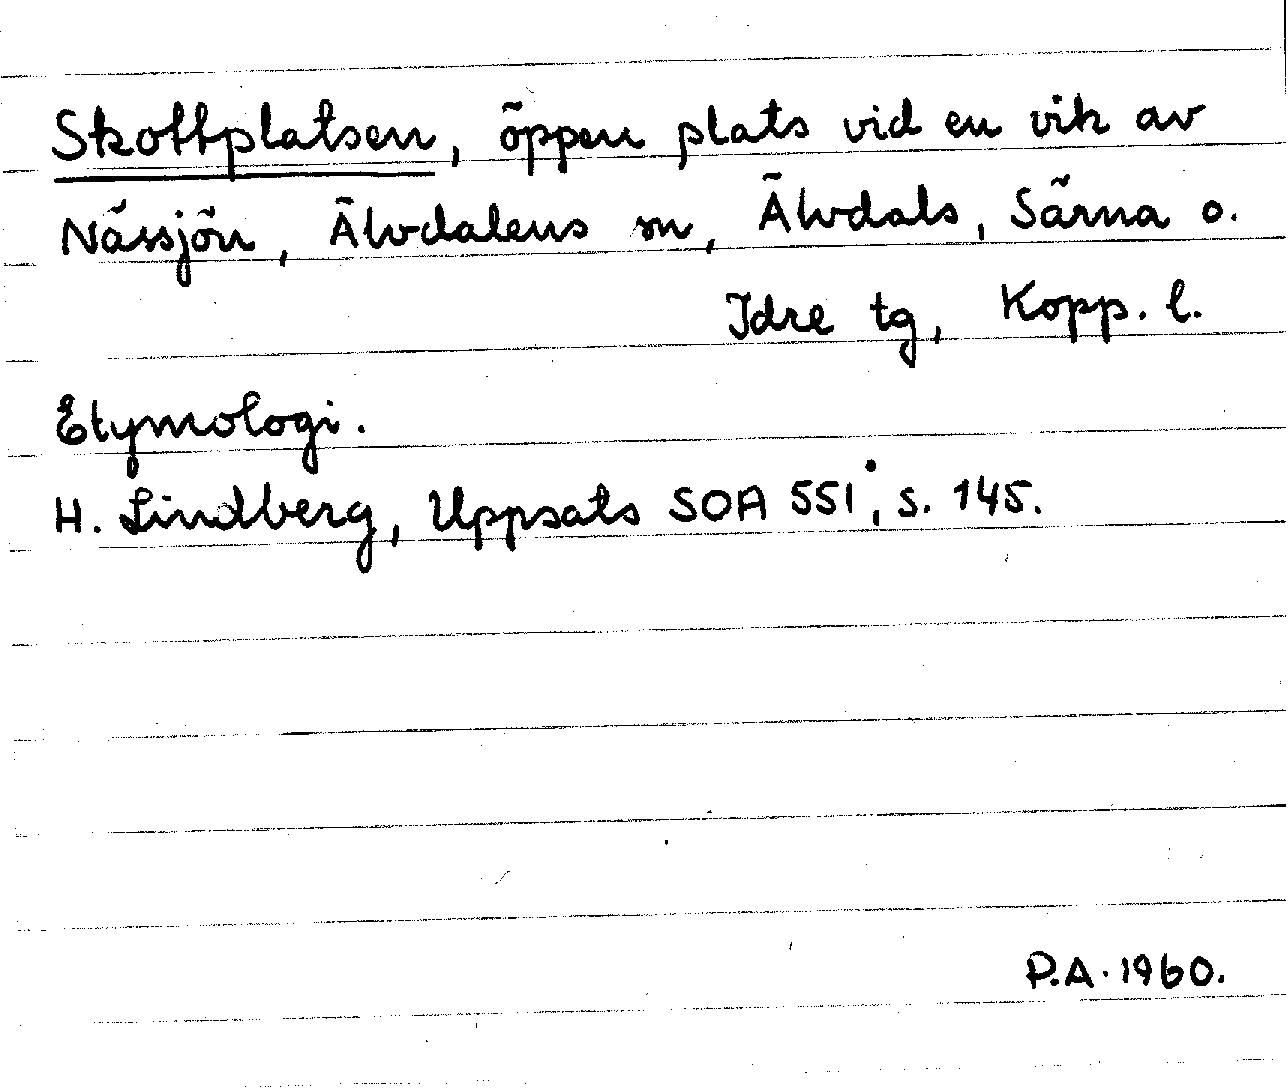 Skottplatsen, öppen plats vid en vik av
Nässjön, Älvdalens sn, Älvdals, Särna o.
Idre tg, Kopp. l.
Etymologi.
H. Lindberg, Uppsats SOA 551, s. 145.
P.A. 1960.